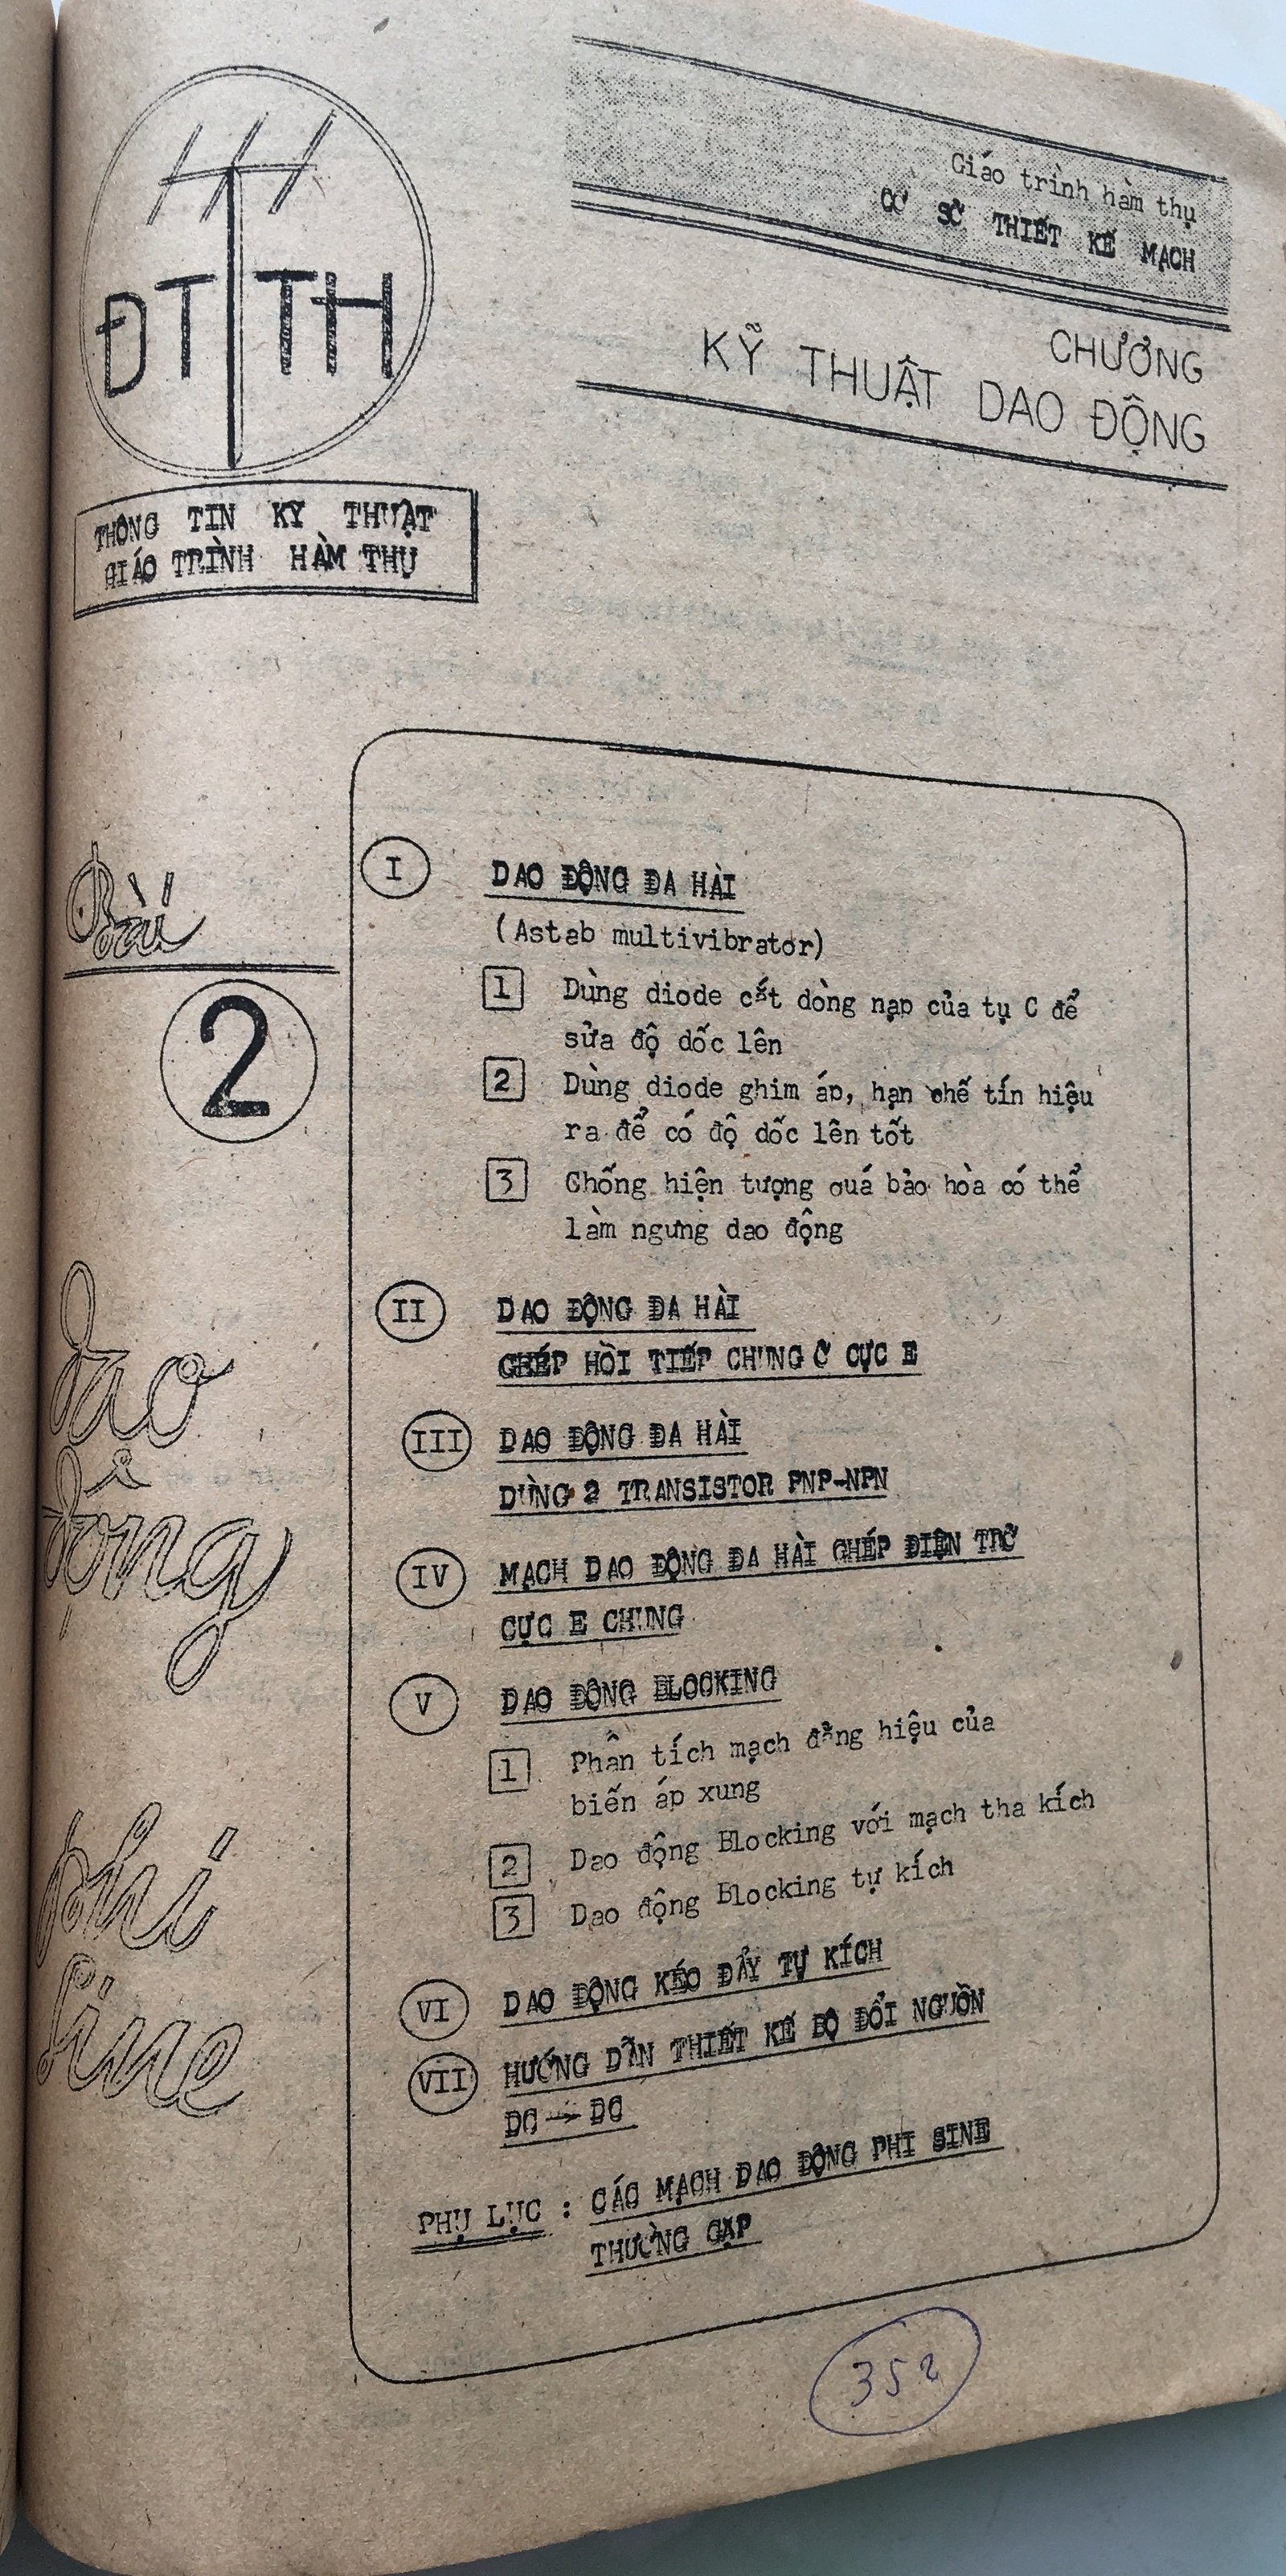 ĐTTH
THÔNG TIN KỸ THUẬT
GIÁO TRÌNH HÀM THỤ
Giáo trình hàm thụ
CƠ SỞ THIẾT KẾ MẠCH
CHƯƠNG
KỸ THUẬT DAO ĐỘNG
Bài
2
dao
động
phi
sine
I DAO ĐỘNG ĐA HÀI
(Astab multivibrator)
1 Dùng diode cắt dòng nạp của tụ C để
sửa độ dốc lên
2 Dùng diode ghim áp, hạn chế tín hiệu
ra để có độ dốc lên tốt
3 Chống hiện tượng quá bảo hòa có thể
làm ngưng dao động
II DAO ĐỘNG ĐA HÀI
GHÉP HỒI TIẾP CHUNG Ở CỰC E
III DAO ĐỘNG ĐA HÀI
DÙNG 2 TRANSISTOR PNP-NPN
IV MẠCH DAO ĐỘNG ĐA HÀI GHÉP ĐIỆN TRỞ
CỰC E CHUNG
V DAO ĐỘNG BLOCKING
1 Phân tích mạch đẳng hiệu của
biến áp xung
2 Dao động Blocking với mạch tha kích
3 Dao động Blocking tự kích
VI DAO ĐỘNG KÉO ĐẨY TỰ KÍCH
VII HƯỚNG DẪN THIẾT KẾ BỘ ĐỔI NGUỒN
DC → DC
PHỤ LỤC : CÁC MẠCH DAO ĐỘNG PHI SINE
THƯỜNG GẶP
352